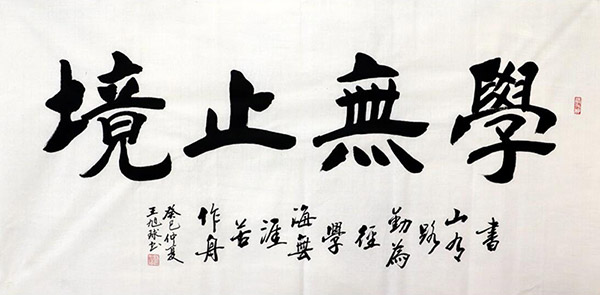 學無止境
書
山有
路
勤為
徑
學
海無
涯
苦
作舟
癸巳仲夏
王旭球书